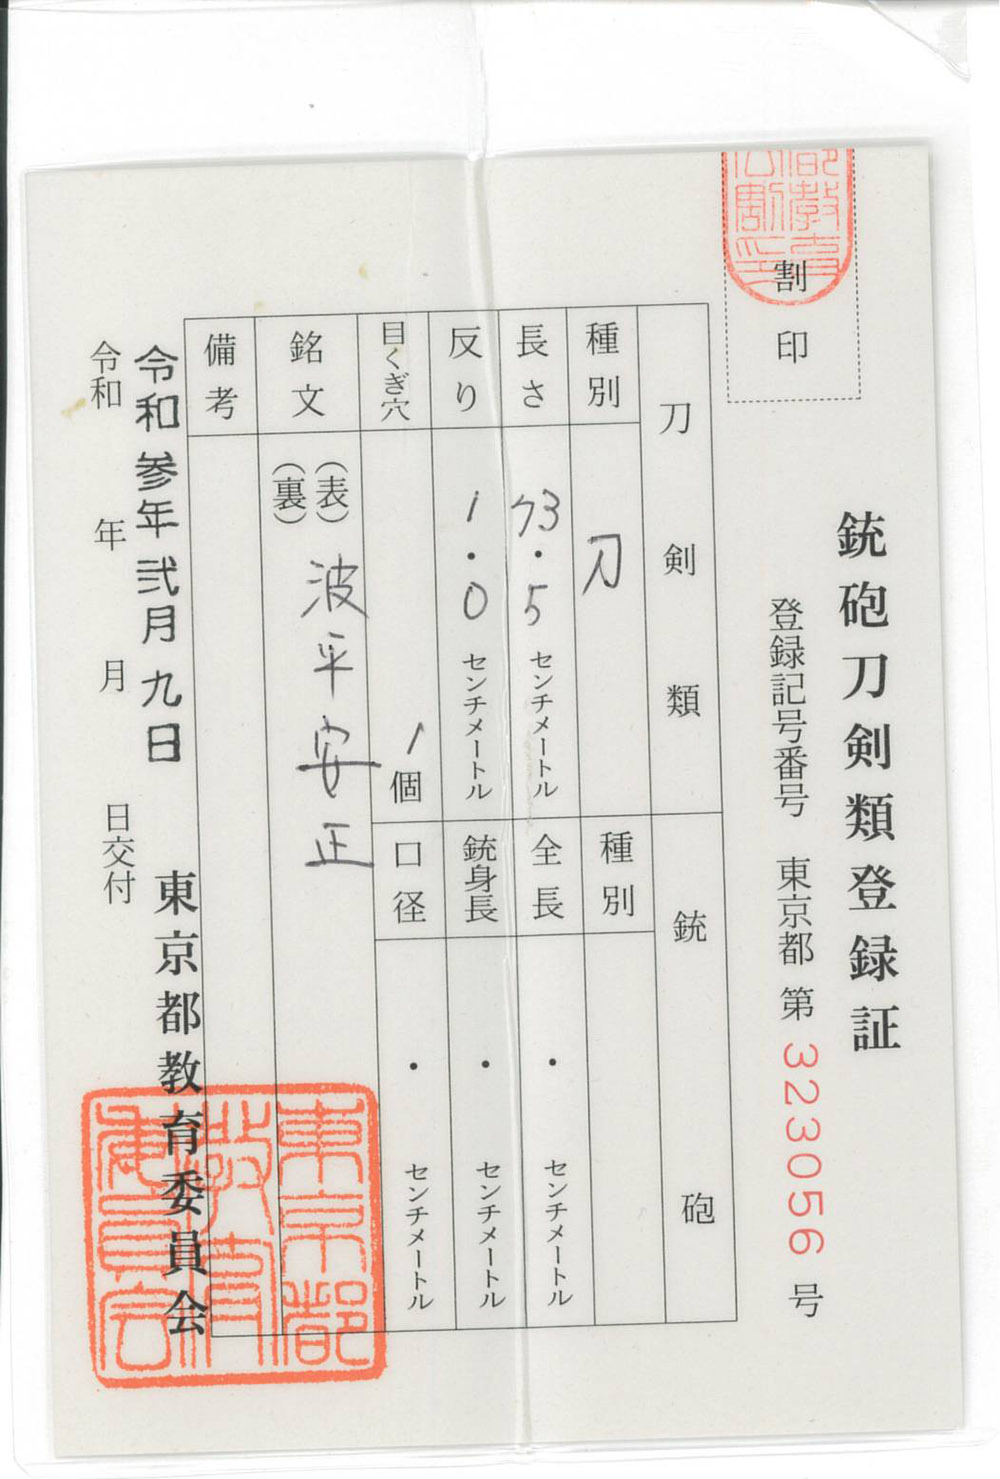 割印
銃砲刀剣類登録証
登録記号番号 東京都 第 323056 号
刀剣類
銃砲
種別 刀
種別
長さ 73.5 センチメートル
全長 ・ センチメートル
反り 1.0 センチメートル
銃身長 ・ センチメートル
目くぎ穴 1個
口径 ・ センチメートル
銘文 (表) 波平安正
(裏)
備考
令和参年弐月九日
東京都教育委員会
令和 年 月 日交付
東京都
教育
委員会